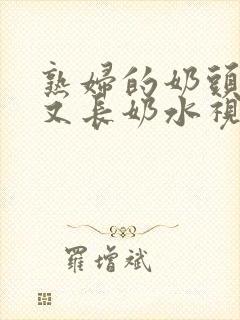 熟婦的奶頭
又長奶水視
羅增斌